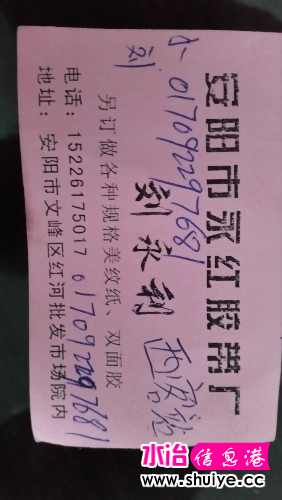 小刘 017092297681
安阳市永红胶带厂
刘永利
西客站
另订做各种规格美纹纸、双面胶
电话：15226175017
017092297681
地址：安阳市文峰区红河批发市场院内
水冶信息港
www.shuiye.cc